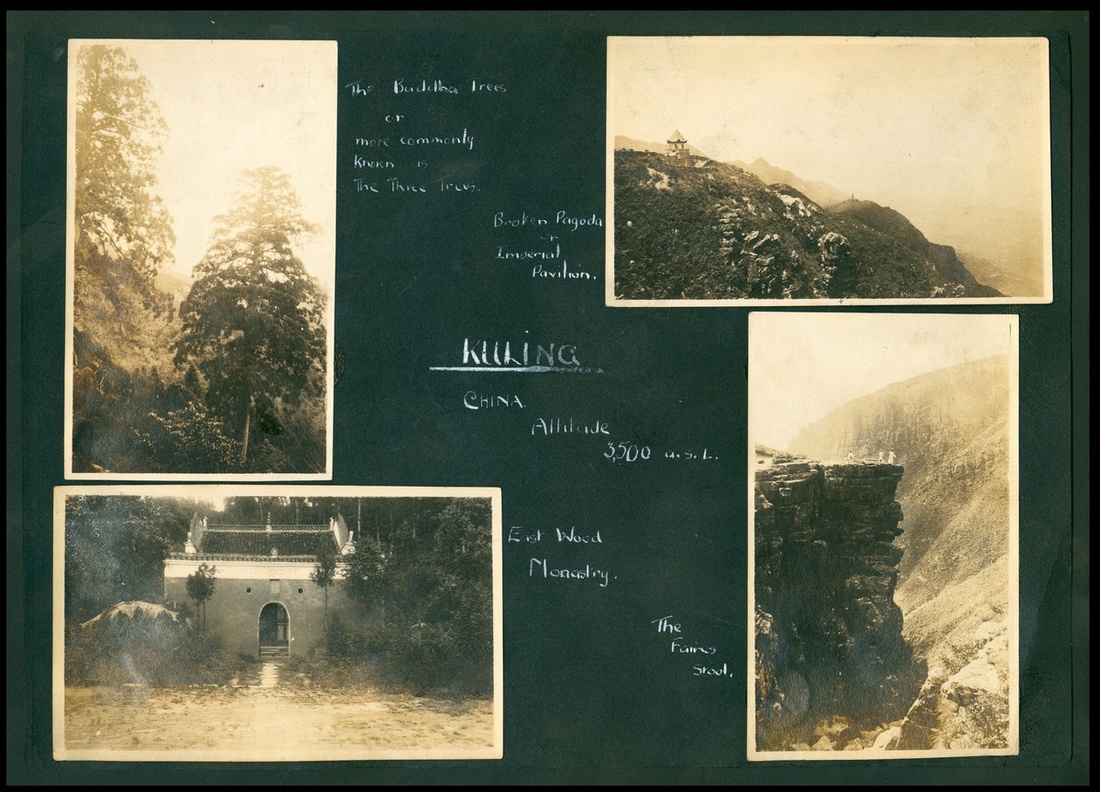 The Buddha Trees
or
more commonly
Known as
The Three Trees.
Broken Pagoda
or
Imperial
Pavilion.
KULING
CHINA.
Altitude
3,500 a.s.l.
East Wood
Monastry.
The
Fairies
Stool.